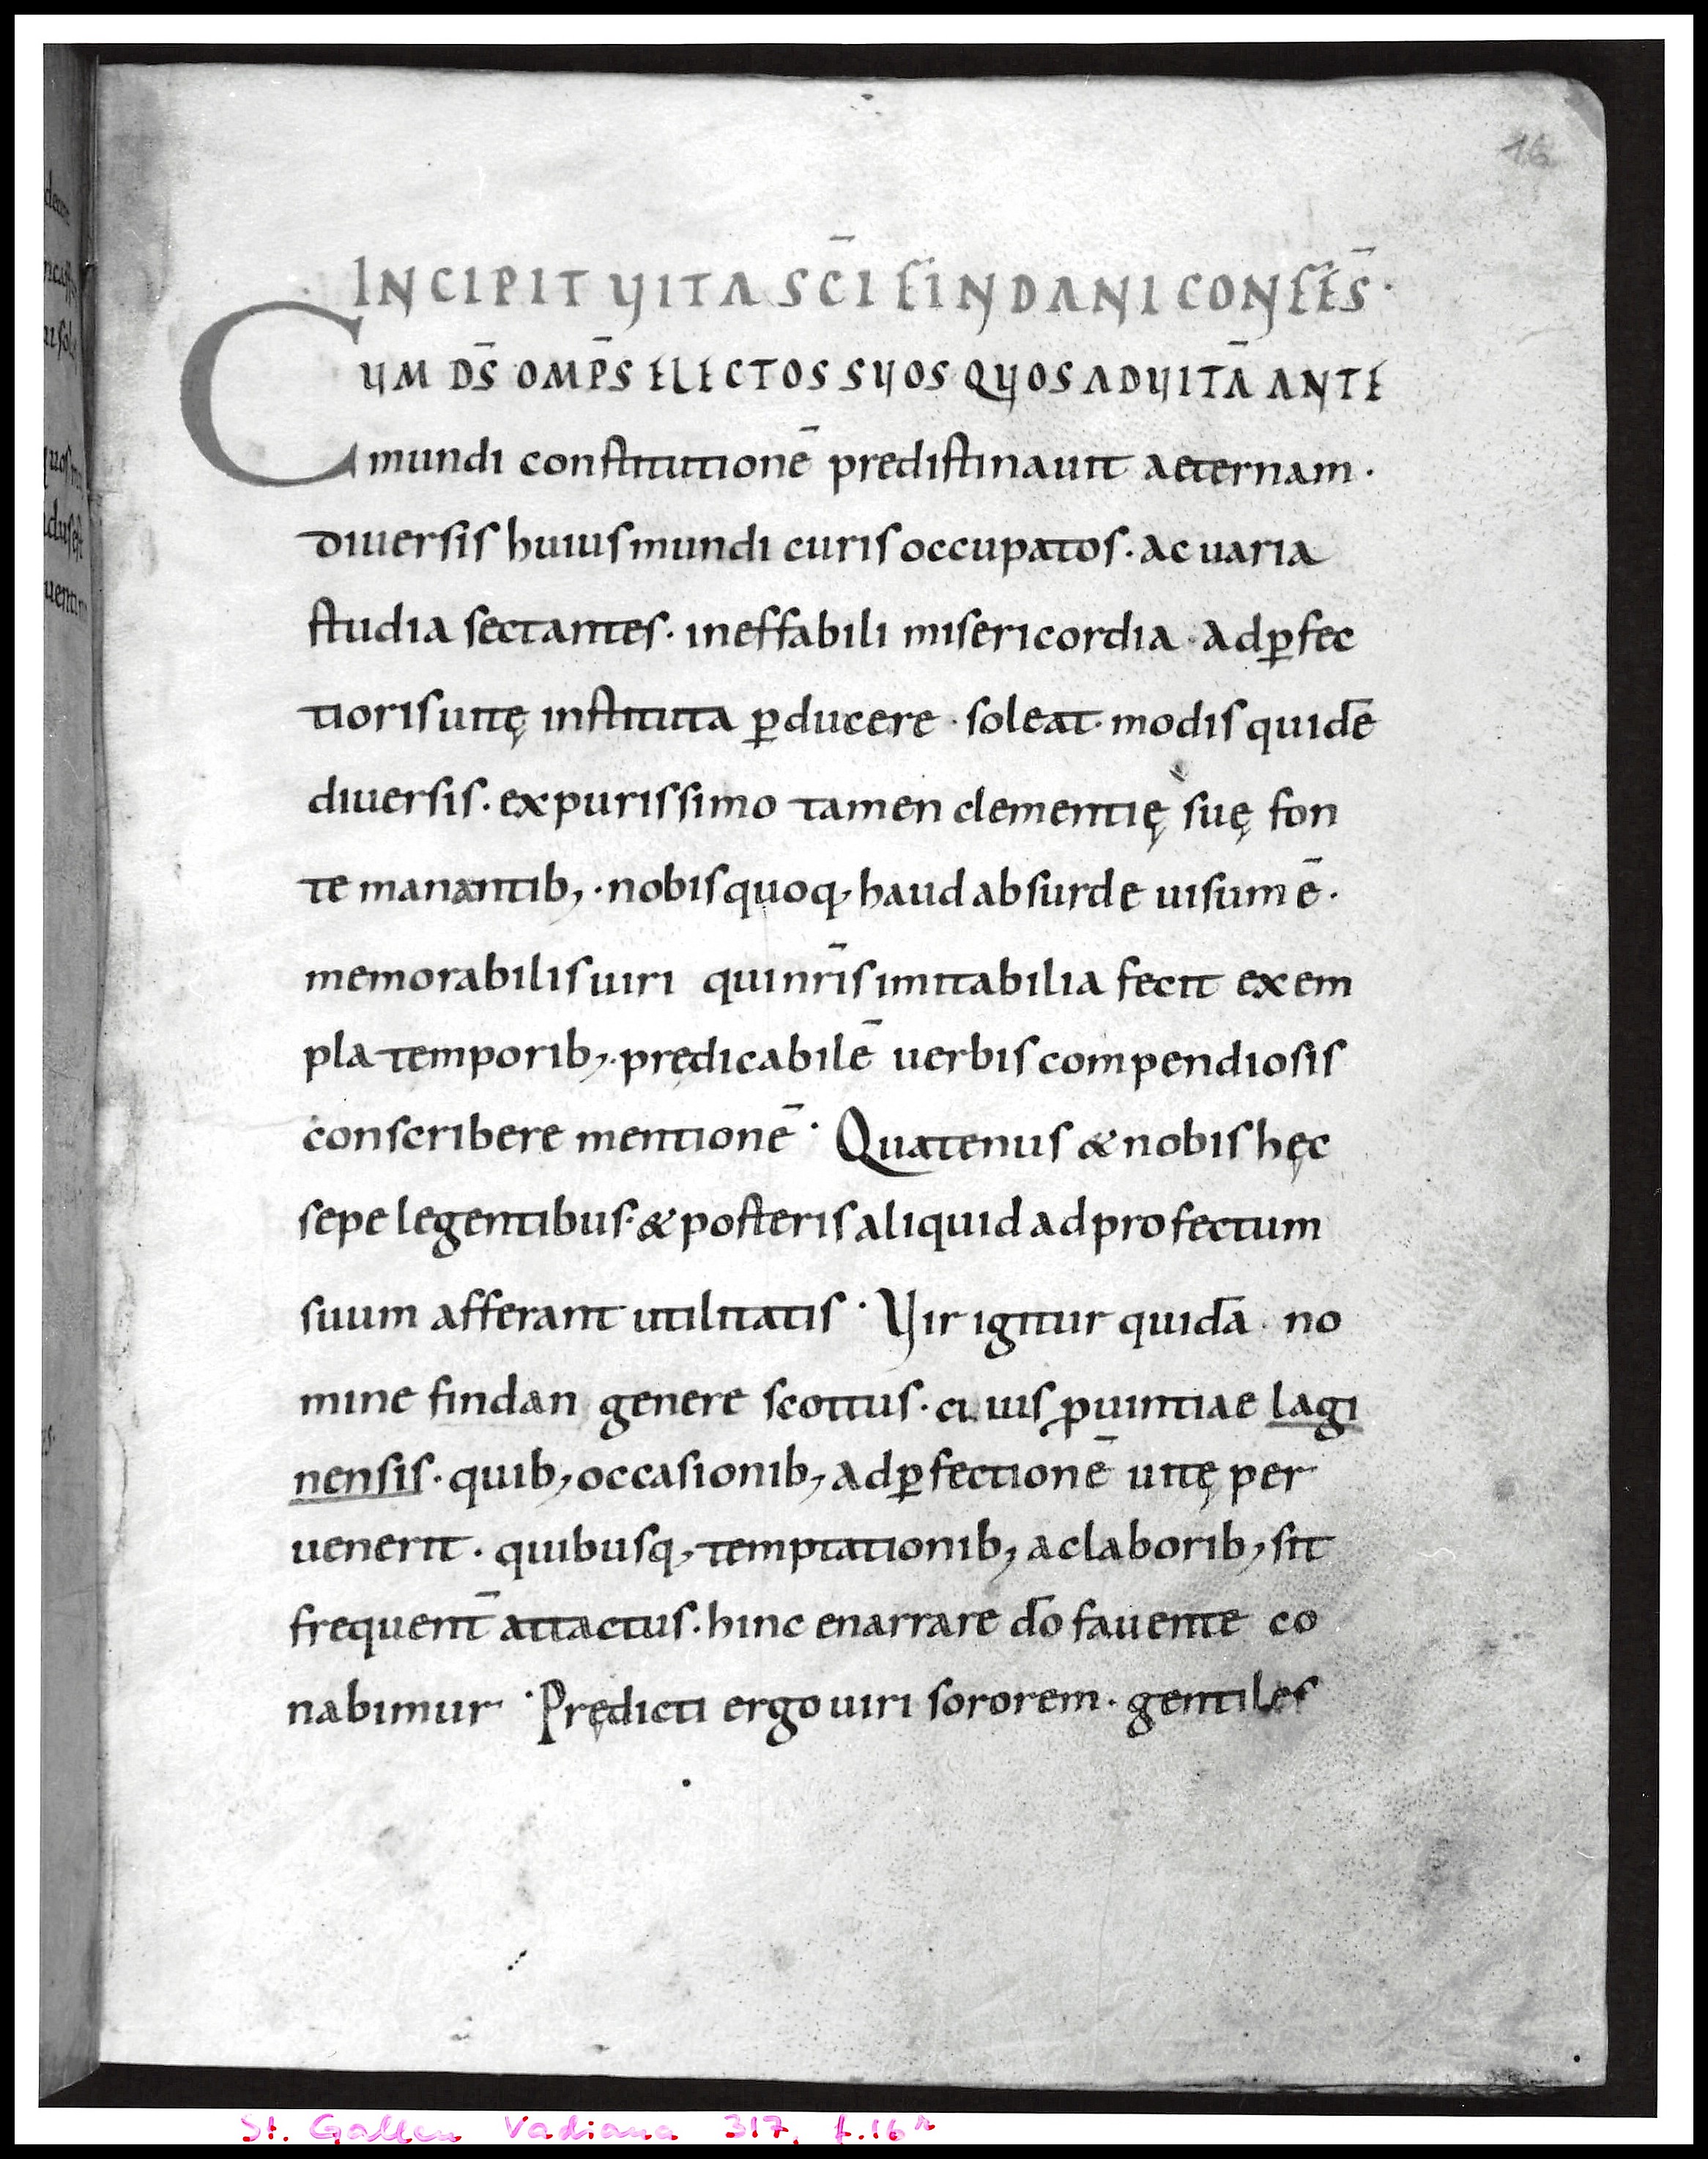 16
INCIPIT VITA SC̄I FINDANI CONFES̄·
CVM D̄S OMP̄S ELECTOS SVOS QVOS AD VITĀ ANTE
mundi constitutionē predistinauit aeternam·
diuersis huius mundi curis occupatos· ac uaria
studia sectantes· ineffabili misericordia· ad ꝑfec
tioris uitę instituta ꝑducere· soleat· modis quidē
diuersis· ex purissimo tamen clementię suę fon
te manantib;· nobis quoq; haud absurde uisum ē·
memorabilis uiri qui nr̄is imitabilia fecit exem
pla temporib;· prędicabilē uerbis compendiosis
conscribere mentionē· Quatenus & nobis hęc
sepe legentibus· & posteris aliquid ad profectum
suum afferant utilitatis· Vir igitur quidā· no
mine findan genere scottus· ciuis ꝓuintiae lagi
nensis· quib; occasionib; ad ꝑfectionē uitę per
uenerit· quibusq; temptationib; ac laborib; sit
frequent̄ attactus· hinc enarrare dō fauente co
nabimur· Prędicti ergo uiri sororem· gentiles
St. Gallen Vadiana 317, f.16r